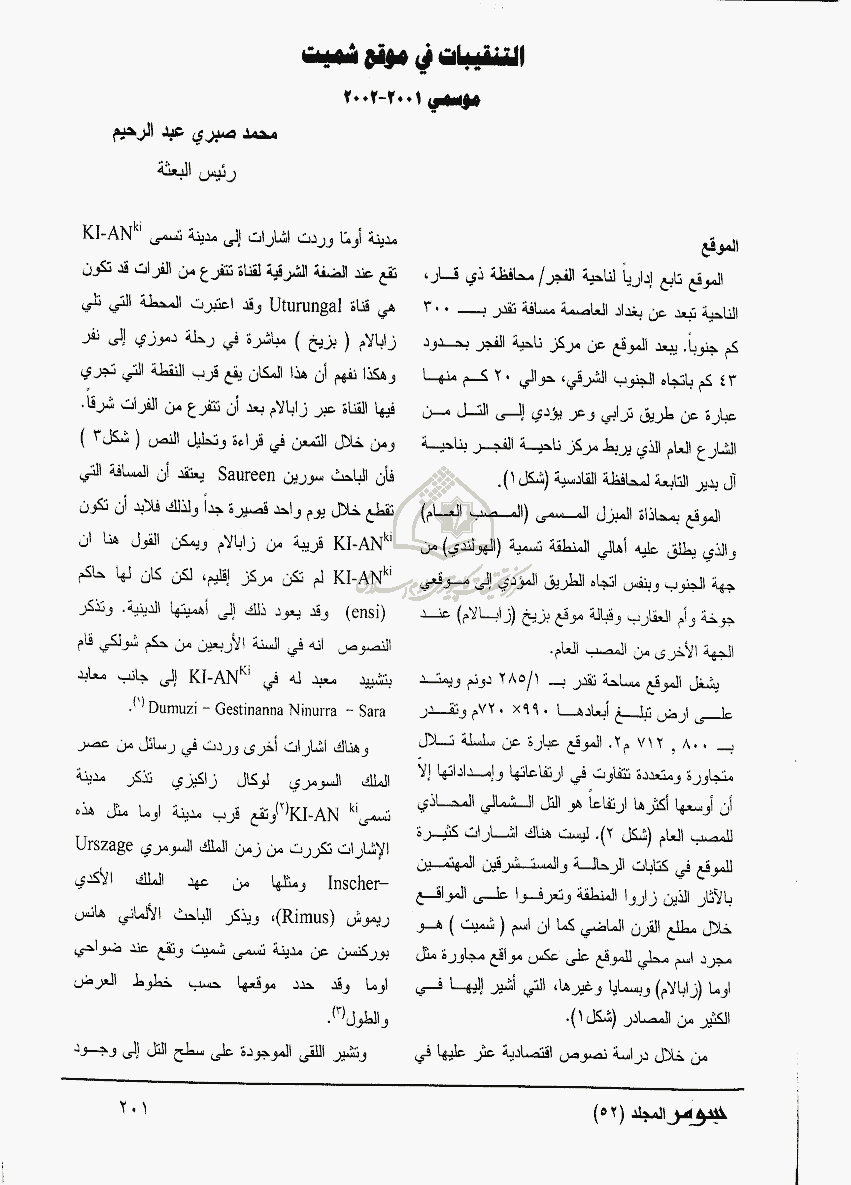 التنقيبات في موقع شميت
موسمي ٢٠٠١-٢٠٠٢
محمد صبري عبد الرحيم
رئيس البعثة
الموقع
الموقع تابع إدارياً لناحية الفجر/ محافظة ذي قـار،
الناحية تبعد عن بغداد العاصمة مسافة تقدر بـــ ٣٠٠
كم جنوباً. يبعد الموقع عن مركز ناحية الفجر بحـدود
٤٣ كم باتجاه الجنوب الشرقي، حوالي ٢٠ كـم منهـا
عبارة عن طريق ترابي وعر يؤدي إلـى التـل مـن
الشارع العام الذي يربط مركز ناحيـة الفجـر بناحيـة
آل بدير التابعة لمحافظة القادسية (شكل١).
الموقع بمحاذاة المبزل المـسمى (المـصب العـام)
والذي يطلق عليه أهالي المنطقة تسمية (الهولندي) من
جهة الجنوب وبنفس اتجاه الطريق المؤدي إلى مـوقعي
جوخة وأم العقارب وقبالة موقع بزيخ (زابـالام) عنـد
الجهة الأخرى من المصب العام.
يشغل الموقع مساحة تقدر بـ ٢٨٥/١ دونم ويمتـد
علـى ارض تبلـغ أبعادهـا ٩٩٠×٧٢٠م وتقـدر
بـ ٨٠٠ , ٧١٢ م٢. الموقع عبارة عن سلسلة تـلال
متجاورة ومتعددة تتفاوت في ارتفاعاتها وإمـداداتها إلاّ
أن أوسعها أكثرها ارتفاعاً هو التل الـشمالي المحـاذي
للمصب العام (شكل ٢). ليست هناك اشـارات كثيـرة
للموقع في كتابات الرحالـة والمستـشرقين المهتمـين
بالآثار الذين زاروا المنطقة وتعرفـوا علـى المواقـع
خلال مطلع القرن الماضي كما ان اسم ( شميت ) هـو
مجرد اسم محلي للموقع على عكس مواقع مجاورة مثل
اوما (زابالام) وبسمايا وغيرها، التي أشير إليهـا فـي
الكثير من المصادر (شكل١).
من خلال دراسة نصوص اقتصادية عثر عليها في
مدينة أومّا وردت اشارات إلى مدينة تسمى KI-ANki
تقع عند الضفة الشرقية لقناة تتفرع من الفرات قد تكون
هي قناة Uturungal وقد اعتبرت المحطة التي تلي
زابالام ( بزيخ ) مباشرة في رحلة دموزي إلى نفر
وهكذا نفهم أن هذا المكان يقع قرب النقطة التي تجري
فيها القناة عبر زابالام بعد أن تتفرع من الفرات شرقاً.
ومن خلال التمعن في قراءة وتحليل النص ( شكل٣ )
فأن الباحث سورين Saureen يعتقد أن المسافة التي
تقطع خلال يوم واحد قصيرة جداً ولذلك فلابد أن تكون
KI-ANki قريبة من زابالام ويمكن القول هنا ان
KI-ANki لم تكن مركز إقليم، لكن كان لها حاكم
(ensi) وقد يعود ذلك إلى أهميتها الدينية. وتذكر
النصوص انه في السنة الأربعين من حكم شولكي قام
بتشييد معبد له في KI-ANKi إلى جانب معابد
Dumuzi – Gestinanna Ninurra – Sara (١).
وهناك اشارات أخرى وردت في رسائل من عصر
الملك السومري لوكال زاكيزي تذكر مدينة
تسمى KI-AN ki(٢)وتقع قرب مدينة اوما مثل هذه
الإشارات تكررت من زمن الملك السومري Urszage
–Inscher ومثلها من عهد الملك الأكدي
ريموش (Rimus)، ويذكر الباحث الألماني هانس
بوركنسن عن مدينة تسمى شميت وتقع عند ضواحي
اوما وقد حدد موقعها حسب خطوط العرض
والطول(٣).
وتشير اللقى الموجودة على سطح التل إلى وجـود
سومر المجلد (٥٢)
٢٠١